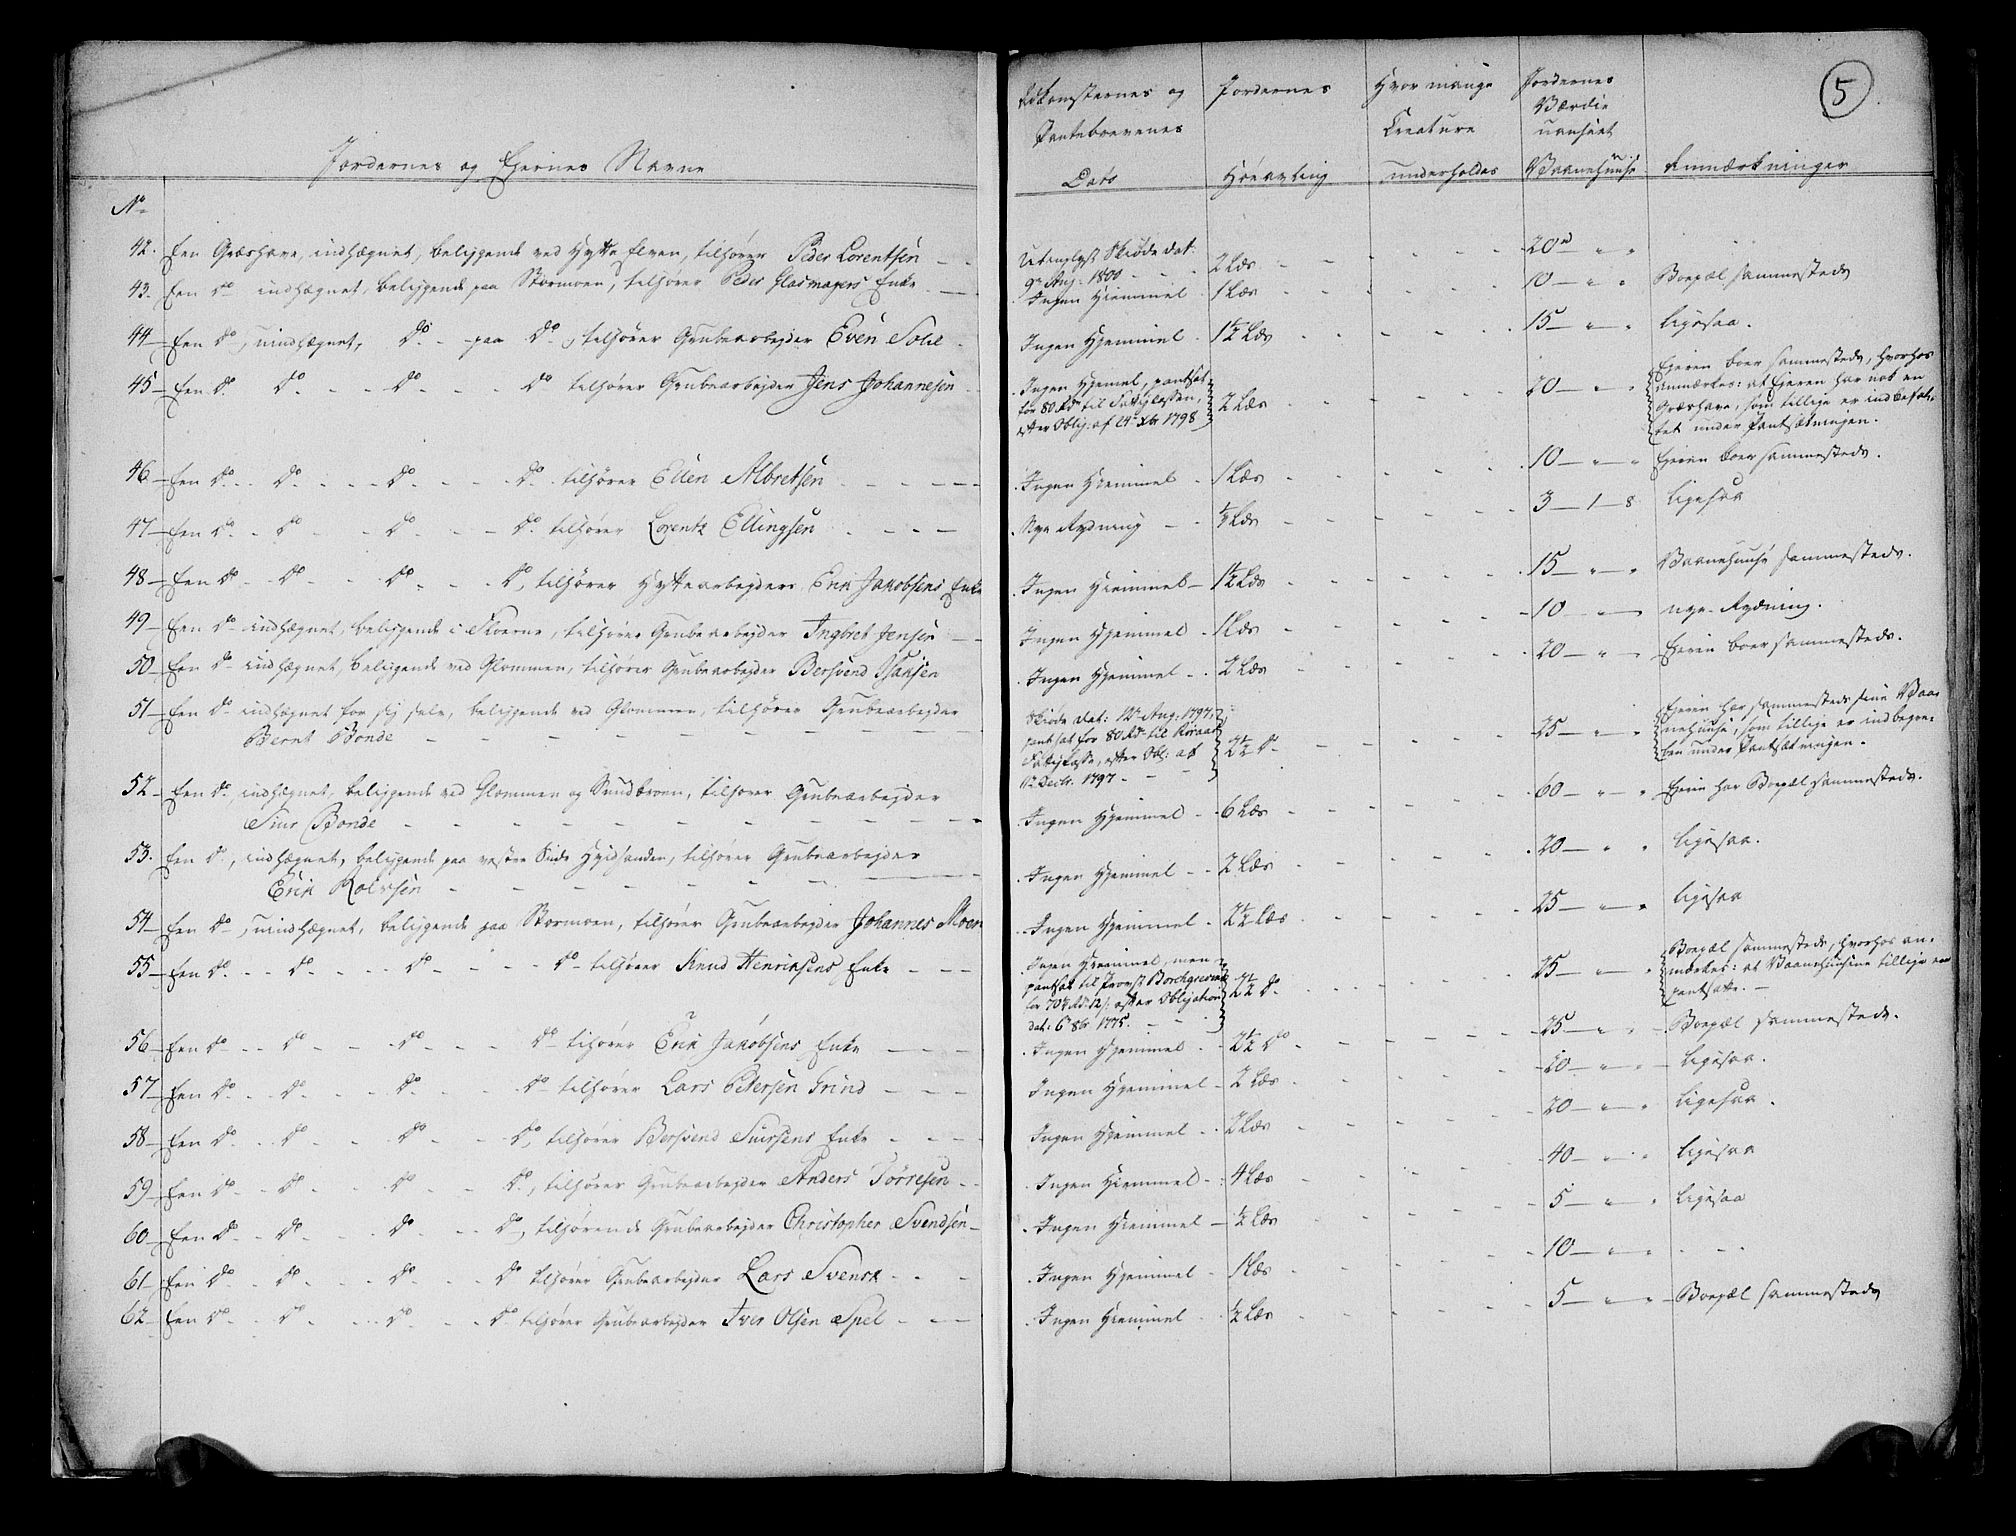 5
Jordernes og Ejernes Navne
Adkomsternes og
Pantebrevenes
Dato
Jordernes
Høeavling
Hvor mange
Creature
underholdes
Jordernes
Værdie
uanseet
Vaanehuuse
Anmærkninger
No
42. Een Græshave, indhægnet, beliggende ved Hytte Elven, tilhører Peder Lorentsen
Utinglyst Skiøde dat:
9de Aug: 1800 - 2 Læs - 20rd " "
43. Een do indhægnet, beliggende paa Stormoen, tilhører Peder Glasmagers Enke
Ingen Hiemmel 1 Læs 10 - " " Boepæl sammesteds
44 Een do, uindhægnet, do - paa do, tilhører Grubearbejder Even Solie
Ingen Hjemmel 1½ Læs 15 - " " Ligesaa.
45 - Een do do - do - do tilhører Grubearbejder Jens Johannesen
Ingen Hjemel, pantsat
for 80 Rd til Fattigkassen,
efter Oblig: af 24 Xbr 1798
2 Læs 20 - " "
Ejeren boer sammesteds, hvorhos
anmærkes: at Ejeren har nok en
Græshave, som tillige er indbefat-
tet under Pantsætningen.
46 - Een do - do - do - do tilhører Ellen Albretsen
Ingen Hiemmel - 1 Læs 10 - " " Ejeren boer sammesteds.
47 - Een do - do - do - do tilhører Lorentz Ellingsen
Nye Rydning - Læs 3 - 1 - 8 Ligesaa
48 - Een do - do - do - do, tilhører Hyttearbejders Erik Jakobsens Enke
Ingen Hiemmel - 1½ Læs 15 - " " Vaanehuuse sammesteds.
49 - Een do indhægnet, beliggende i Floerne, tilhører Grubearbejder Ingbret Jensen
Ingen Hjemmel - 1 Læs 10 - " nye Rydning.
50 - Een do indhægnet, beliggende ved Glommen, tilhører Grubearbejder Bersvend Hansen
Ingen Hjemmel - 2 Læs 20 - " Ejeren boer sammesteds.
51 - Een do indhægnet for sig selv, beliggende ved Glommen, tilhører Grubearbejder
Bernt Bonde
Skiøde dat: 12te Aug: 1797,
pantsat for 80 Rd til Røraas
Fattigkasse, efter Obl: af
12 Decbr. 1797 -
2½ do 25 - " "
Ejeren har sammesteds sine Vaa-
nehuuse, som tillige er indbegre-
ben under Pantsætningen.
52 - Een do indhægnet, beliggende ved Glommen og Sundbroen, tilhører Grubearbejder
Siur Bonde
Ingen Hjemmel - 6 Læs 60 - " " Ejeren har Boepæl sammesteds.
53. Een do, indhægnet, beliggende paa vestre Side Hvidsanden, tilhører Grubearbejder
Erik Rolvsen
Ingen Hjemmel - 2 Læs 20 - " " Ligesaa.
54 - Een do, uindhægnet, beliggende paa Stormoen, tilhører Grubearbejder Johannes Moen
Ingen Hjemmel - 2½ Læs 25 - " " Ligesaa
55 - Een do - do - do - do tilhører Knud Henriksens Enke
Ingen Hiemmel, men
pantsat til Provst Borchgrevink
for 70 Rd 12 s: efter Obligation
dat: 6te 8br. 1775.
2½ do 25 - " "
Boepæl sammesteds, hvorhos an-
mærkes: at Vaanehuusene tillige ere
pantsatte. -
56 - Een do - do - do - do tilhører Erik Jakobsens Enke
Ingen Hjemmel - 2½ do 25 - " " Boepæl sammesteds.
57 - Een do - do - do - do tilhører Lars Pedersen Grind
Ingen Hjemmel - 2 Læs 20 - " " Ligesaa.
58 - Een do - do - do - do, tilhører Bersvend Siursens Enke
Ingen Hjemmel - 2 Læs 20 - " " Ligesaa.
59 - Een do - do - do - do, tilhører Grubearbejder Anders Törresen
Ingen Hiemmel - 4 Læs 40 - " Ligesaa
60 - Een do - do - do - do, tilhørende Grubearbejder Christopher Svendsen
Ingen Hiemmel - ½ Læs 5 - " " Ligesaa
61 - Een do - do - do - do tilhører Grubearbejder Lars Svensk
Ingen Hjemmel - 1 Læs 10 - " "
62 - Een do - do - do - do tilhører Grubearbejder Iver Olsen Spel
Ingen Hiemmel - ½ Læs 5 - " " Boepæl sammesteds